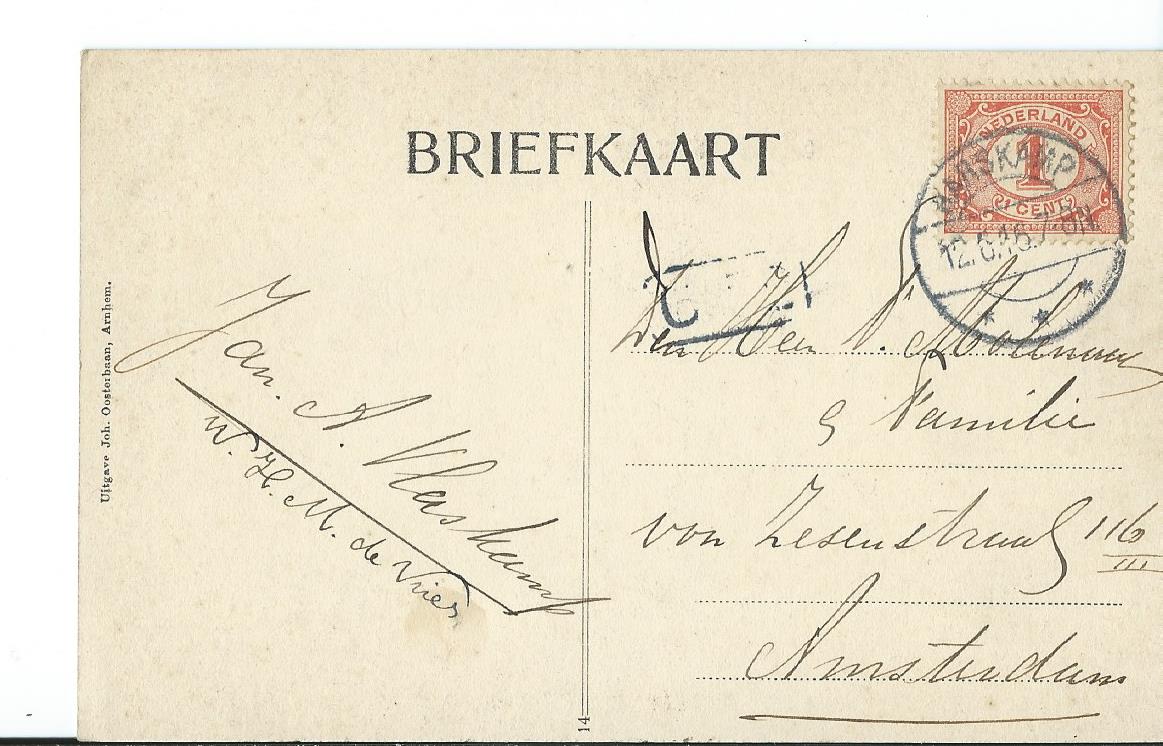 BRIEFKAART
NEDERLAND
1
CENT
HARSKAMP
12.6.16.7-8N
Den Heer P. Molenaar
& Familie
von Zesenstraat 116
III
Amsterdam
Jan. A. Vlaskamp
W. H. M. de Vries
Uitgave Joh. Oosterbaan, Arnhem.
14